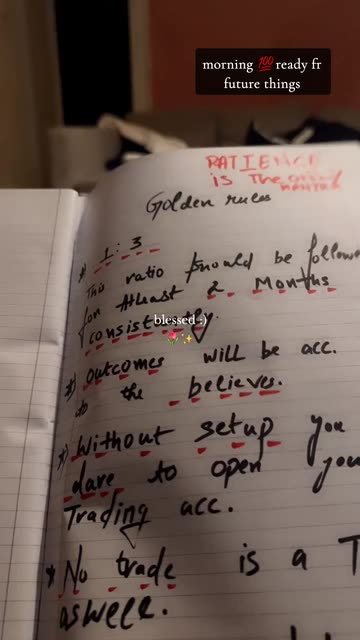 morning 💯 ready fr
future things
PATIENCE
is The only
MANTRA
Golden rules
* 1:3
This ratio should be followe
for Atleast 2 Months
consistently.
blessed :)
🌷✨
* outcomes will be acc.
to the believes.
* Without setup you
dare to open you
Trading acc.
* No trade is a T
aswell.